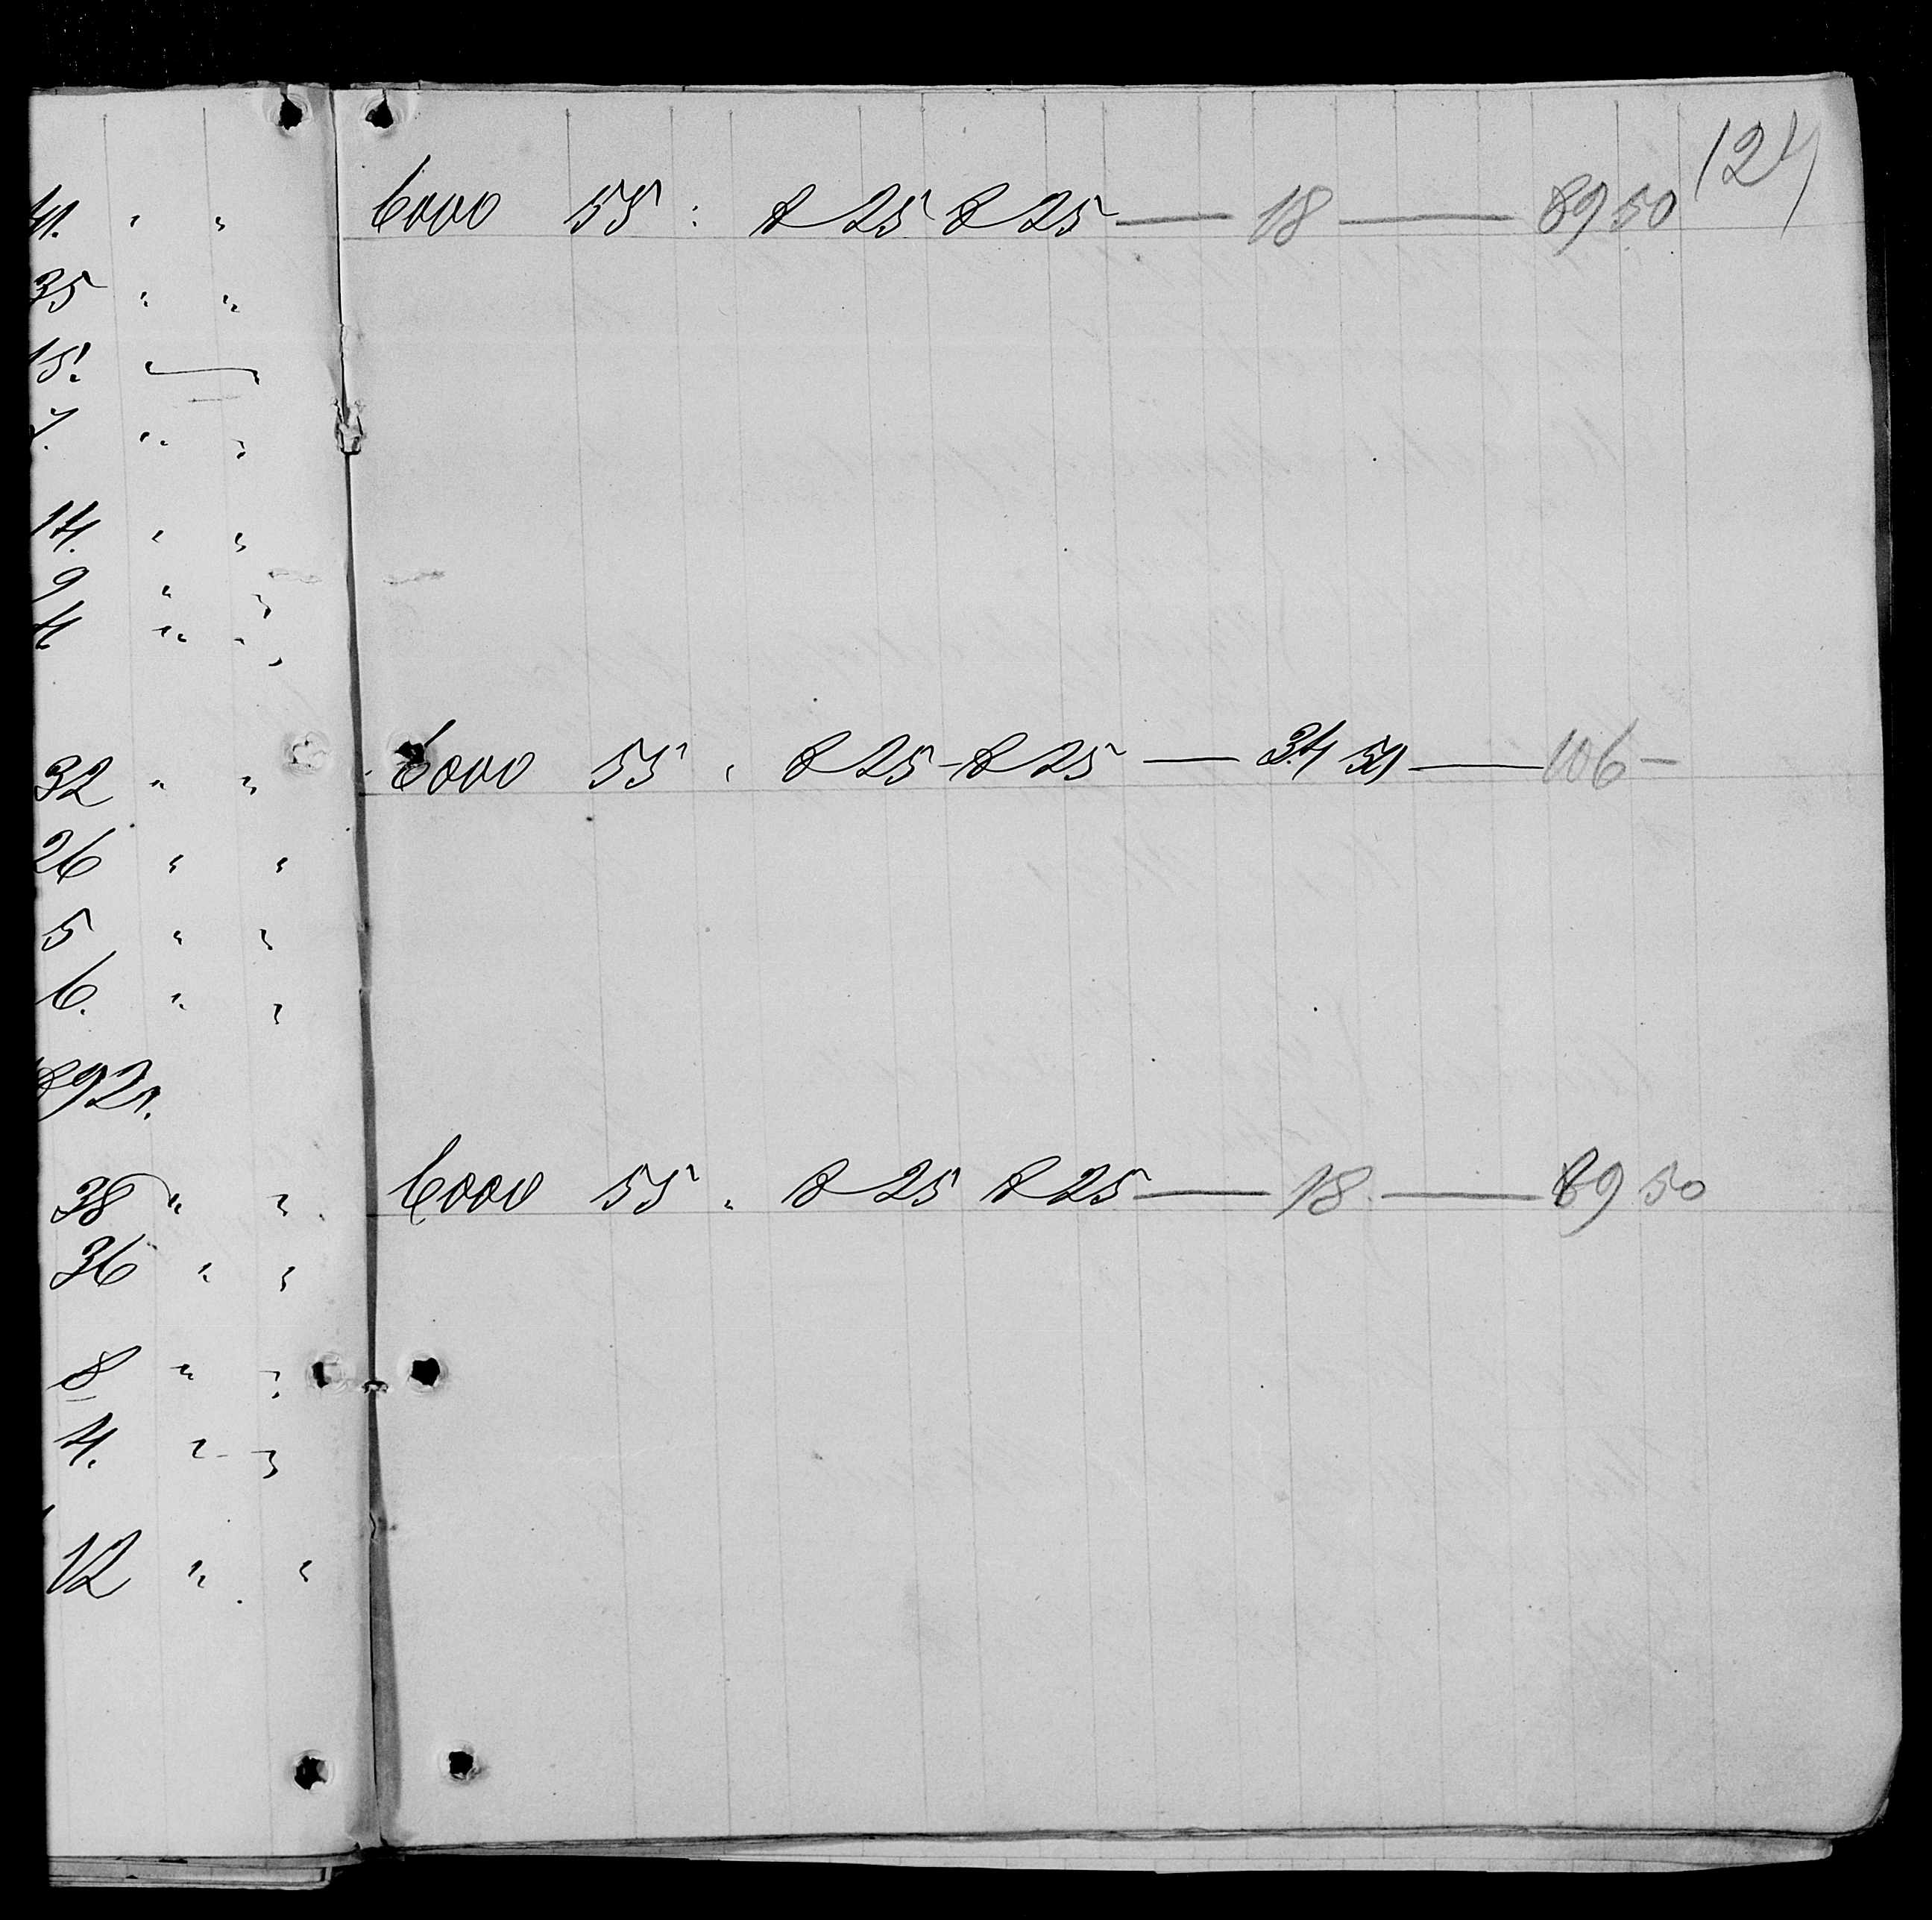 124
41. " "
6000 55 : 8 25 8 25 — 18 — 89 50
35 " "
15. " "
7. " "
14. " "
9 " "
4. " "
32 " "
6000 55 " 8 25 - 8 25 — 34 50 — 106 -
26 " "
5 " "
6. " "
892г.
38 " "
6000 55 " 8 25 8 25 — 18 — 89 50
36 " "
8 " "
4. " "
12 " "